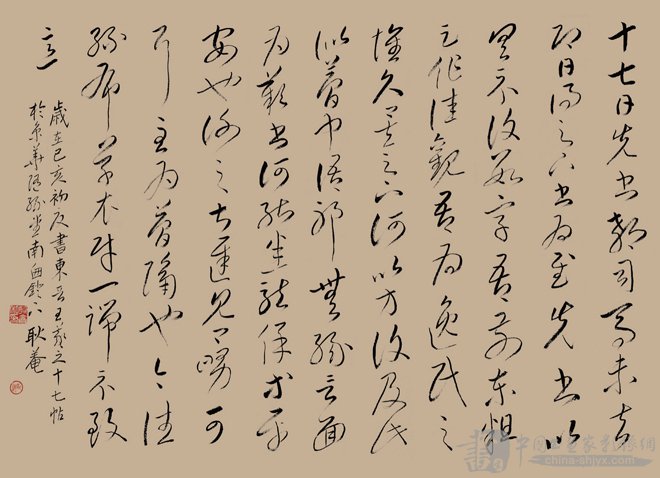 十七日先书郗司馬未去
即日得足下書為慰先書以
具示復數字吾前東粗
足作佳觀吾為逸民之
懷久矣足下何以方復及此
似夢中語耶無緣言面
為歎書何能悉龍保等平
安也謝之甚遲見卿舅可
耳至為簡隔也今往
絲布單衣財一端示致
意
歲在己亥初夏書東晉王羲之十七帖
於京華堂南 耿菴
china-shjyx.com